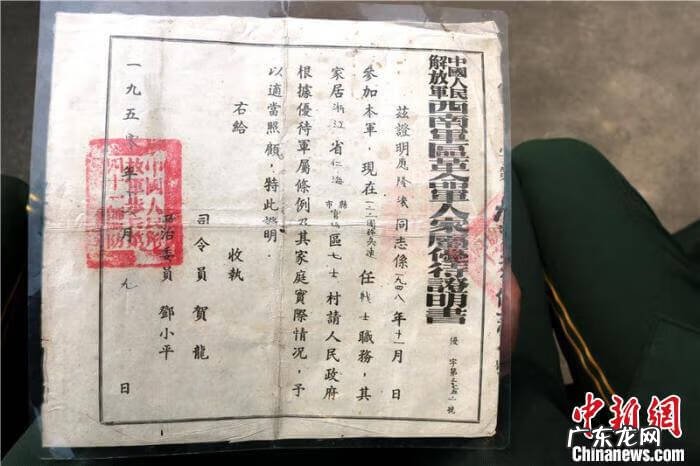 中國人民
解放軍
西南軍區革命軍人家屬優待證明書
優字第
號
茲證明應
同志係一九四八年十一月 日
參加本軍，現在
任戰士職務，其
家居浙江省
縣
市
區七士村請人民政府
根據優待軍屬條例及其家庭實際情況，予
以適當照顧，特此證明．
右給
收執
司令員 賀龍
政治委員 鄧小平
一九五〇年 月 九 日
中新網
广东龙网
Chinanews.com